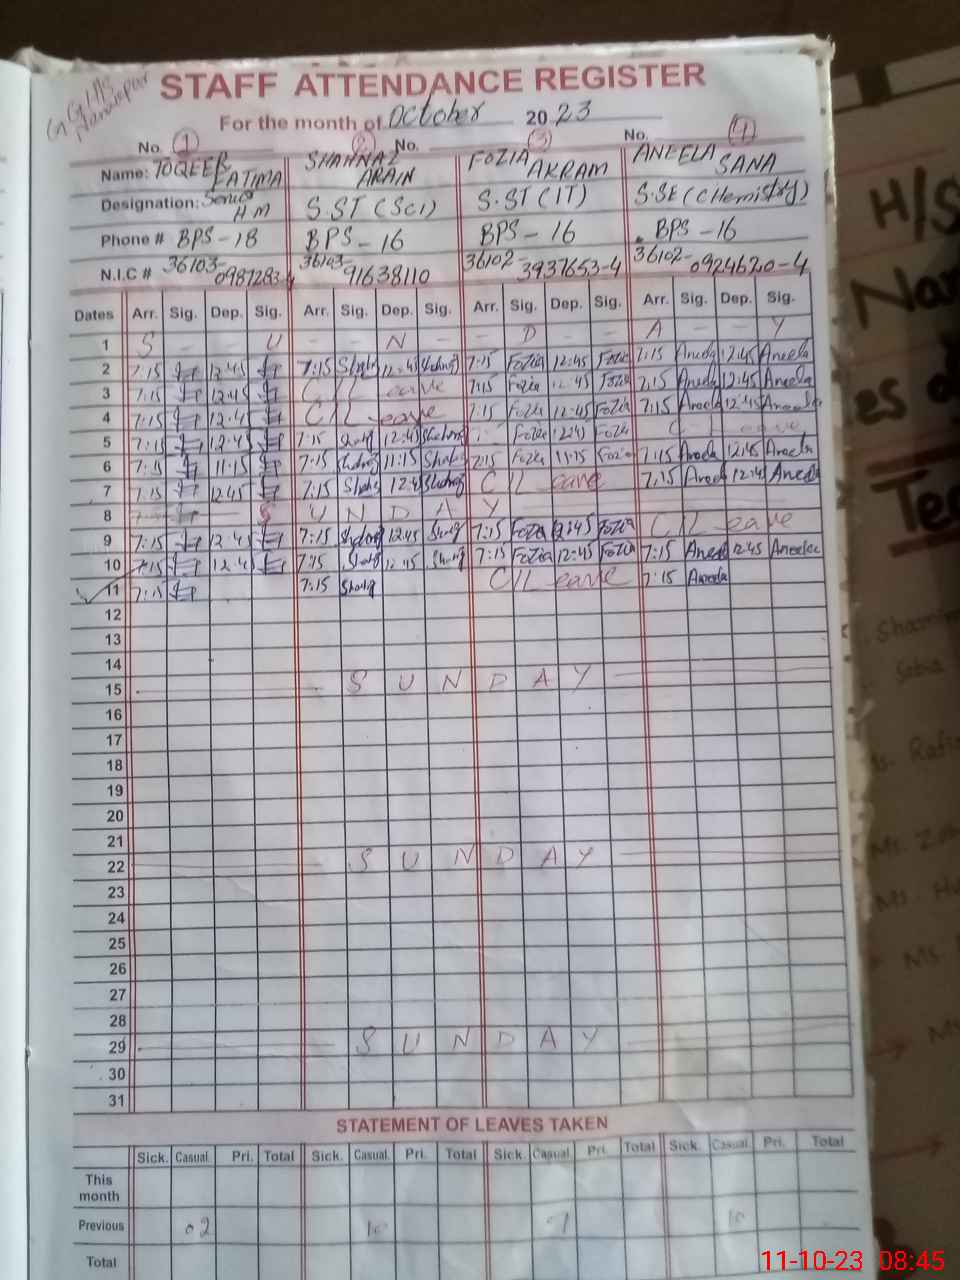 G.G.H.S
STAFF ATTENDANCE REGISTER
For the month of October 2023
No. 1 2 No. 3 No. 4
Name: TOQEER FATIMA SHAHNAZ ARAIN FOZIA AKRAM ANEELA SANA
Designation: Senior HM S.ST (Sci) S.ST (IT) S.SE (CHemistry)
Phone # BPS-18 BPS-16 BPS-16 BPS-16
N.I.C # 36103- 36103-91638110 36102-3937653-4 36102-0924620-4
Dates Arr. Sig. Dep. Sig. Arr. Sig. Dep. Sig. Arr. Sig. Dep. Sig. Arr. Sig. Dep. Sig.
1 S - - U - - N - - D - - A - - Y
2 7:15 12:45 7:15 12:45 7:15 Fozia 12:45 Fozia 7:15 Aneela 12:45 Aneela
3 7:15 12:45 C/Leave 7:15 Fozia 12:45 Fozia 7:15 Aneela 12:45 Aneela
4 7:15 12:45 C/Leave 7:15 Fozia 12:45 Fozia 7:15 Aneela 12:45 Aneela
5 7:15 12:45 7:15 12:45 Fozia 12:45 Fozia C/Leave
6 7:15 11:15 7:15 11:15 7:15 Fozia 11:15 Fozia 7:15 Aneela 12:45 Aneela
7 7:15 12:45 7:15 12:45 C/Leave 7:15 Aneela 12:45 Aneela
8 S U N D A Y
9 7:15 12:45 7:15 12:45 7:15 Fozia 12:45 Fozia C/Leave
10 7:15 12:45 7:15 12:45 7:15 Fozia 12:45 Fozia 7:15 Aneela 12:45 Aneela
11 7:15 7:15 C/Leave 7:15 Aneela
12
13
14
15 S U N D A Y
16
17
18
19
20
21
22 S U N D A Y
23
24
25
26
27
28
29 S U N D A Y
30
31
STATEMENT OF LEAVES TAKEN
Sick. Casual. Pri. Total Sick. Casual. Pri. Total Sick. Casual. Pri. Total Sick. Casual. Pri. Total
This month
Previous 02 10 10
Total
H/S
Tea
Ms.
11-10-23 08:45